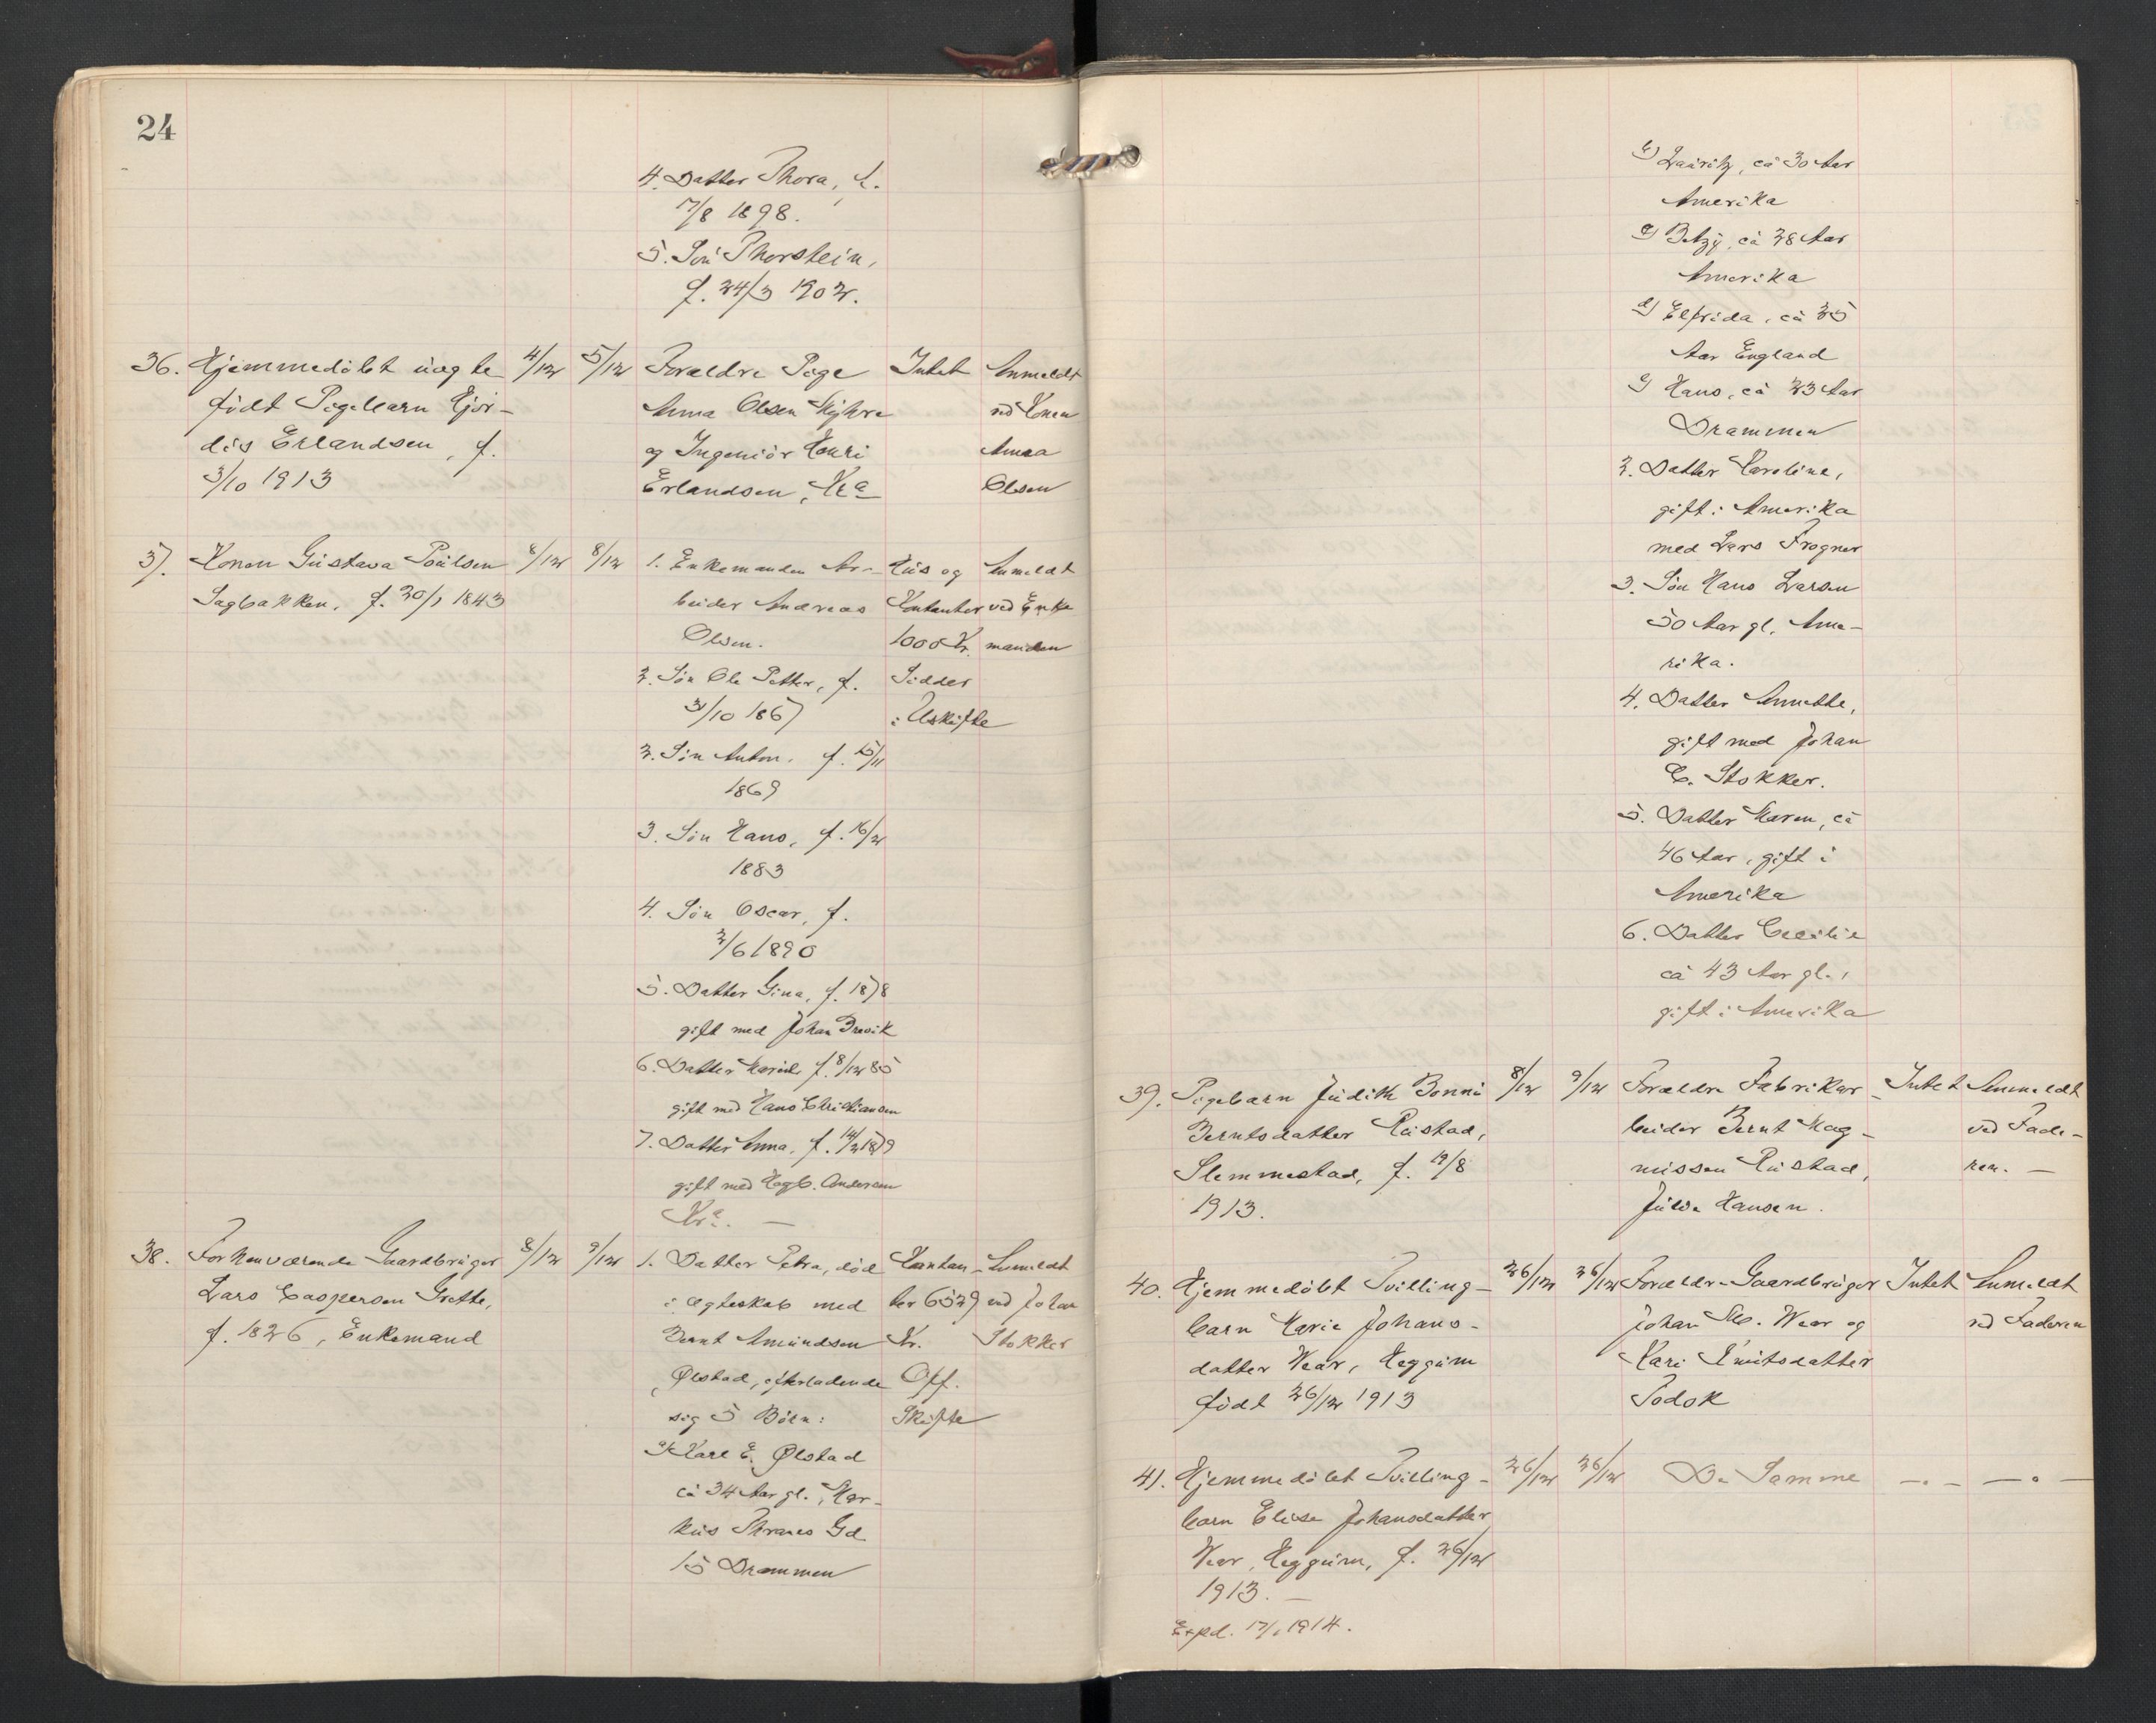 24
4. Datter Thora, f.
17/8 1898.
5. Søn Thorstein,
f. 24/3 1902.
36. Hjemmedøbt uægte
født Pigebarn Hjør-
dis Erlandsen, f.
3/10 1913
4/12 5/12
Forældre Pige
Anna Olsen
og Ingeniør Henri
Erlandsen, Kra
Intet
Anmeldt
ved Konen
Anna
Olsen
37. Konen Gustava Poulsen
Sagbakken, f. 1843
8/12 8/12
1. Enkemanden Ar-
beider Andreas
Olsen.
2. Søn Ole Petter, f.
31/10 1867
2. Søn Anton, f. 15/11
1869
3. Søn Hans, f. 16/2
1883
4. Søn Oscar, f.
2/6 1890
5. Datter Gina, f. 1878
gift med Johan Brevik
6. Datter f. 8/12 85
gift med Hans Christiansen
7. Datter Anna, f. 14/2 1879
gift med Hagb. Andersen
Kra. —
Hus og
Kontanter
1000 Kr.
Sidder
i Uskifte
Anmeldt
ved Enke
manden
38. Forhenværende Gaardbruger
Lars Caspersen Grette,
f. 1826, Enkemand
8/12 9/12
1. Datter Petra, død
i Ægteskab med
Bernt Amundsen
Ølstad, efterladende
sig 5 Børn:
a) Karl E. Ølstad
ca 34 Aar gl., Mar-
kus Thranes Gd
15 Drammen
Kontan-
ter 6529
Kr.
Off.
Skifte
Anmeldt
ved Johan
Stokker
b) Lauritz, ca 30 Aar
Amerika
c) Betzy, ca 28 Aar
Amerika
d) Elfrida, ca 25
Aar England
e) Hans, ca 23 Aar
Drammen
2. Datter Karoline,
gift i Amerika
med Lars Frogner
3. Søn Hans Larsen
50 Aar gl. Ame-
rika.
4. Datter Annette,
gift med Johan
C. Stokker.
5. Datter Maren, ca
46 Aar, gift i
Amerika
6. Datter Cecilie
ca 43 Aar gl.,
gift i Amerika
39. Pigebarn Judith Bonni
Berntsdatter Rustad,
Slemmestad, f. 19/8
1913.
8/12 9/12
Forældre Fabrikar-
beider Bernt Mag-
nussen Rustad,
Julie Hansen.
Intet
Anmeldt
ved Fade-
ren. —
40. Hjemmedøbt Tvilling-
barn Marie Johans-
datter Wear, Heggum
født 26/12 1913
26/12 26/12
Forældre Gaardbruger
Johan Wear og
Kari Knutsdatter
Todok
Intet
Anmeldt
ved Faderen
41. Hjemmedøbt Tvilling-
barn Elise Johansdatter
Wear, Heggum, f. 26/12
1913. —
26/12 26/12
De Samme
—.— —.—
Expd. 17/1 1914.